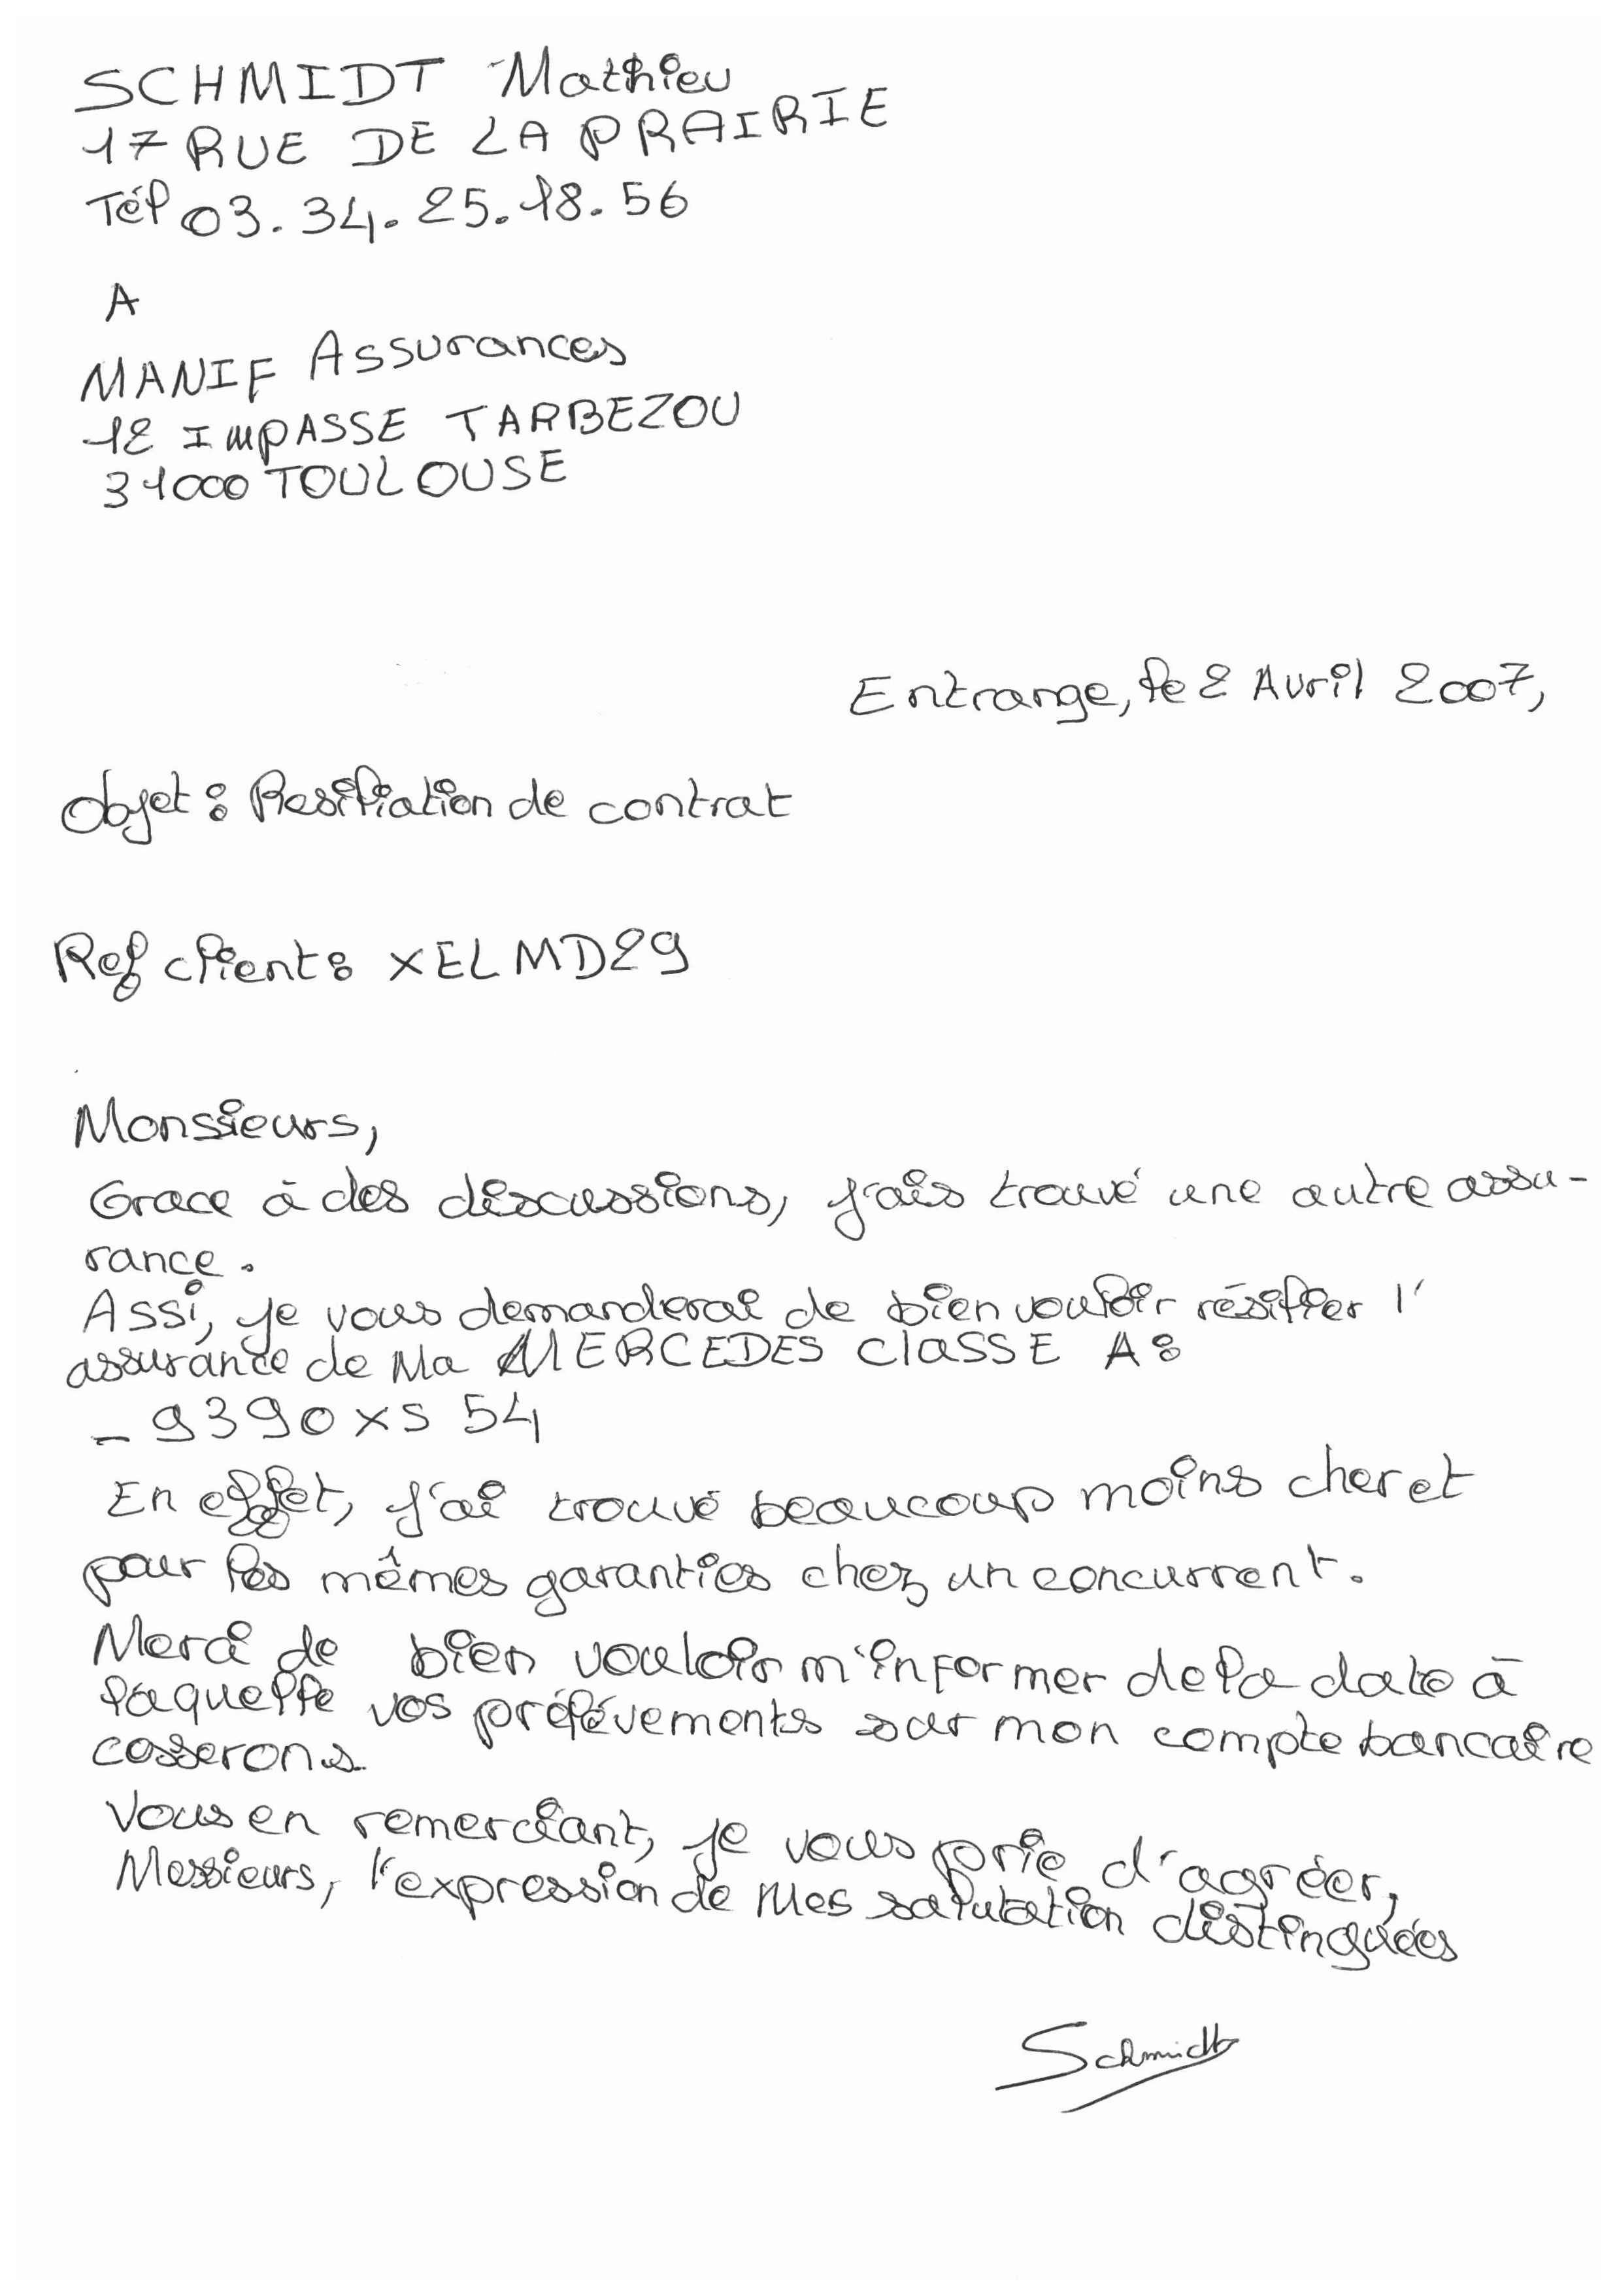 SCHMIDT Mathieu
17 RUE DE LA PRAIRIE
Tél 03.34.25.18.56
A
MANIF Assurances
12 IMPASSE TARBEZOU
31000 TOULOUSE
Entrange, le 2 Avril 2007,
Objet : Resiliation de contrat
Ref client : XELMD29
Monssieurs,
Grace à des discussions, j'ais trouvé une autre assu-
rance.
Assi, je vous demanderai de bien vouloir résilier l'
assurance de Ma MERCEDES ClaSSE A :
- 9390 XS 54
En effet, j'ai trouvé beaucoup moins cher et
pour les mêmes garanties chez un concurrent.
Merci de bien vouloir m'informer de la date à
laquelle vos prélévements sur mon compte bancaire
cesserons.
Vous en remerciant, je vous prie d'agréer,
Messieurs, l'expression de Mes salutation distinguées
Schmidt